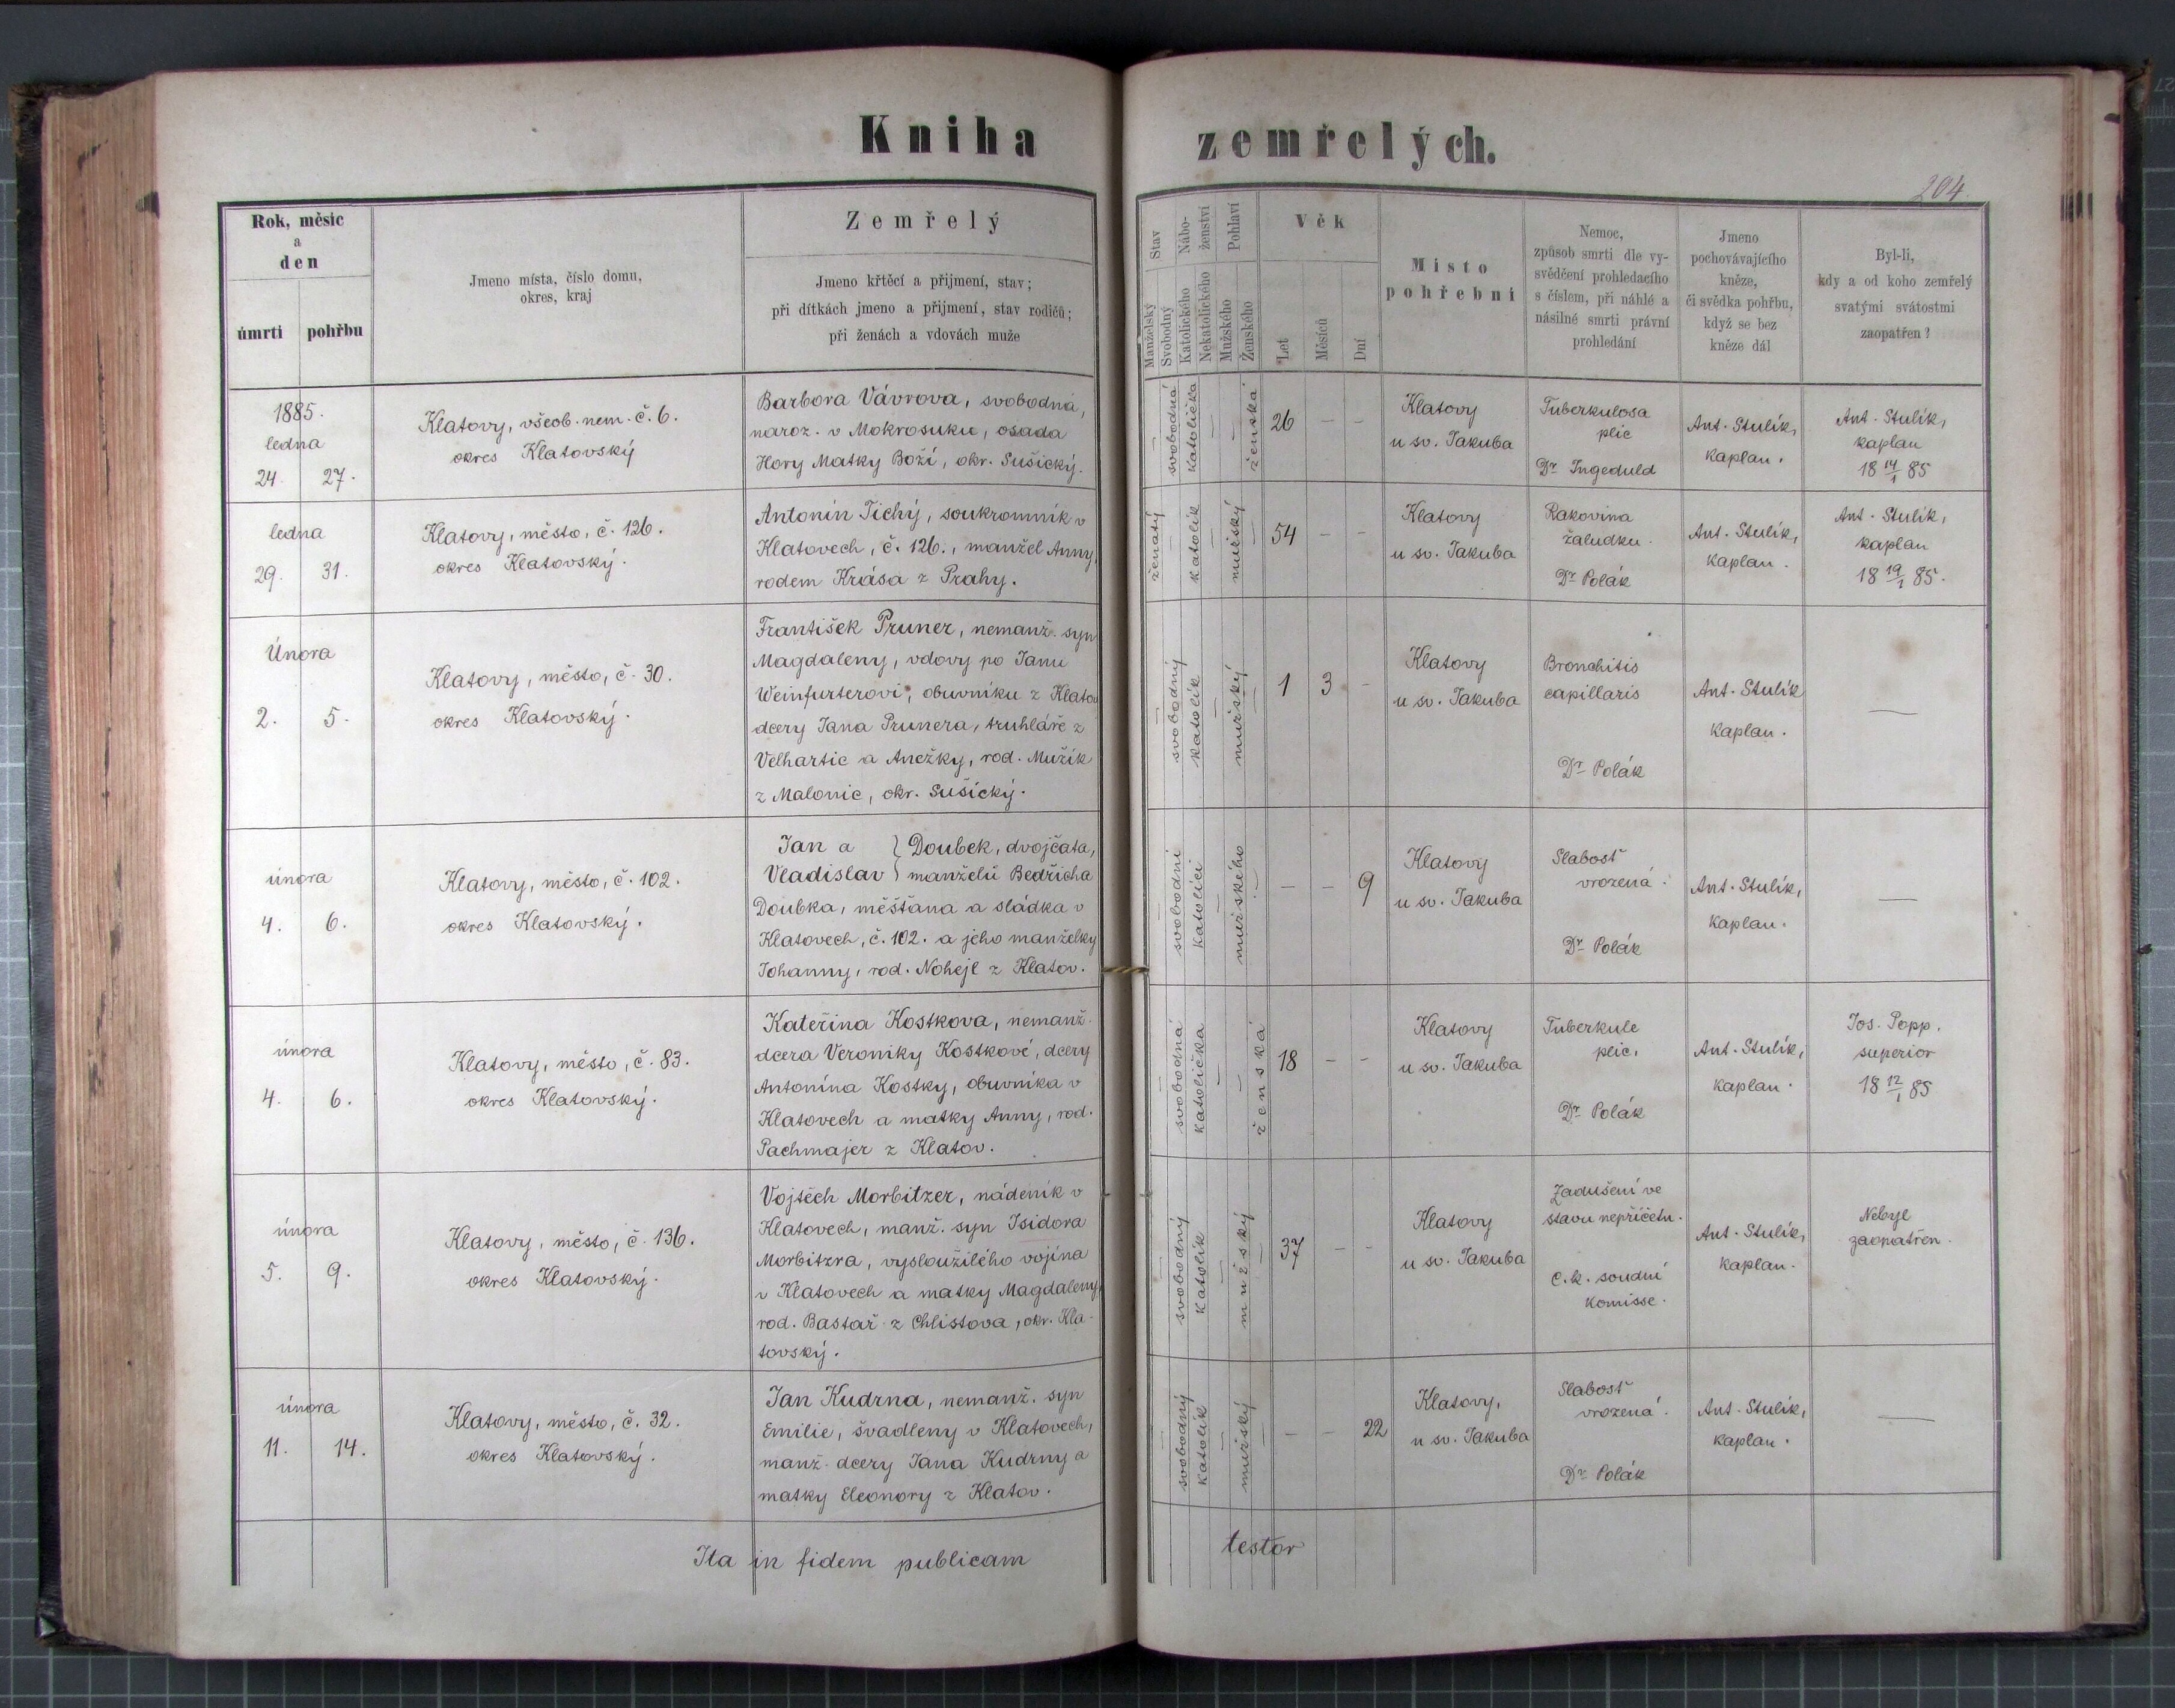 Kniha zemřelých.
204.
Rok, měsíc
a
den
úmrtí
pohřbu
Jmeno místa, číslo domu,
okres, kraj
Zemřelý
Jmeno křtěcí a příjmení, stav;
při dítkách jmeno a příjmení, stav rodičů;
při ženách a vdovách muže
Stav
Manželský
Svobodný
Nábo-
ženství
Katolického
Nekatolického
Pohlaví
Mužského
Ženského
Věk
Let
Měsíců
Dní
Místo
pohřební
Nemoc,
způsob smrti dle vy-
svědčení prohledacího
s číslem, při náhlé a
násilné smrti právní
prohledání
Jmeno
pochovávajícího
kněze,
či svědka pohřbu,
když se bez
kněze dál
Byl-li,
kdy a od koho zemřelý
svatými svátostmi
zaopatřen?
1885.
ledna
24. 27.
Klatovy, všeob. nem. č. 6.
okres Klatovský
Barbora Vávrova, svobodná,
naroz. v Mokrosuku, osada
Hory Matky Boží, okr. Sušický.
—
svobodná
katolička
—
—
ženská
26 — —
Klatovy
u sv. Jakuba
Tuberkulosa
plic
Dr Ingeduld
Ant. Stulík,
kaplan.
Ant. Stulík,
kaplan
18 14/1 85
ledna
29. 31.
Klatovy, město, č. 126.
okres Klatovský.
Antonín Tichý, soukromník v
Klatovech, č. 126., manžel Anny,
rodem Krása z Prahy.
ženatý
—
katolík
—
mužský
—
54 — —
Klatovy
u sv. Jakuba
Rakovina
žaludku.
Dr Polák
Ant. Stulík,
kaplan.
Ant. Stulík,
kaplan
18 19/1 85.
Února
2. 5.
Klatovy, město, č. 30.
okres Klatovský.
František Pruner, nemanž. syn
Magdaleny, vdovy po Janu
Weinfurterovi, obuvníku z Klatov
dcery Jana Prunera, truhláře z
Velhartic a Anežky, rod. Mužík
z Malonic, okr. Sušický.
—
svobodný
katolík
—
mužský
—
1 3 —
Klatovy
u sv. Jakuba
Bronchitis
capillaris
Dr Polák
Ant. Stulík
kaplan.
—
února
4. 6.
Klatovy, město, č. 102.
okres Klatovský.
Jan a } Doubek, dvojčata,
Vladislav } manželů Bedřicha
Doubka, měšťana a sládka v
Klatovech, č. 102. a jeho manželky
Johanny, rod. Nohejl z Klatov.
—
svobodní
katolíci
—
mužského
—
— — 9
Klatovy
u sv. Jakuba
Slabosť
vrozená.
Dr Polák
Ant. Stulík,
kaplan.
—
února
4. 6.
Klatovy, město, č. 83.
okres Klatovský.
Kateřina Kostkova, nemanž.
dcera Veroniky Kostkové, dcery
Antonína Kostky, obuvníka v
Klatovech a matky Anny, rod.
Pachmajer z Klatov.
—
svobodná
katolička
—
—
ženská
18 — —
Klatovy
u sv. Jakuba
Tuberkule
plic.
Dr Polák
Ant. Stulík,
kaplan.
Jos. Popp.
superior
18 12/1 85
února
5. 9.
Klatovy, město, č. 136.
okres Klatovský.
Vojtěch Morbitzer, nádeník v
Klatovech, manž. syn Isidora
Morbitzra, vysloužilého vojína
v Klatovech a matky Magdaleny,
rod. Bastař z Chlistova, okr. Kla-
tovský.
—
svobodný
katolík
—
mužský
—
37 — —
Klatovy
u sv. Jakuba
Zadušení ve
stavu nepříčetn.
c. k. soudní
komisse.
Ant. Stulík,
kaplan.
Nebyl
zaopatřen.
února
11. 14.
Klatovy, město, č. 32.
okres Klatovský.
Jan Kudrna, nemanž. syn
Emilie, švadleny v Klatovech,
manž. dcery Jana Kudrny a
matky Eleonory z Klatov.
—
svobodný
katolík
—
mužský
—
— — 22
Klatovy,
u sv. Jakuba
Slabosť
vrozená.
Dr Polák
Ant. Stulík,
kaplan.
—
Ita in fidem publicam testor